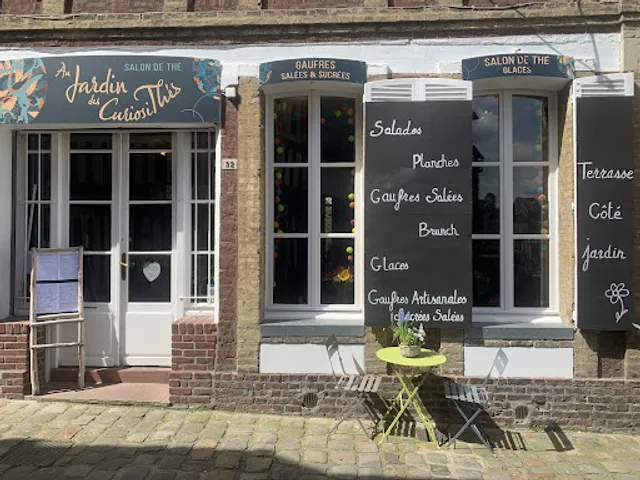 SALON DE THÉ
Au Jardin
des CuriosiThés
32
GAUFRES
SALÉES & SUCRÉES
SALON DE THÉ
GLACES
Salades
Planches
Gaufres Salées
Brunch
Glaces
Gaufres Artisanales
Sucrées Salées
Terrasse
Côté
jardin